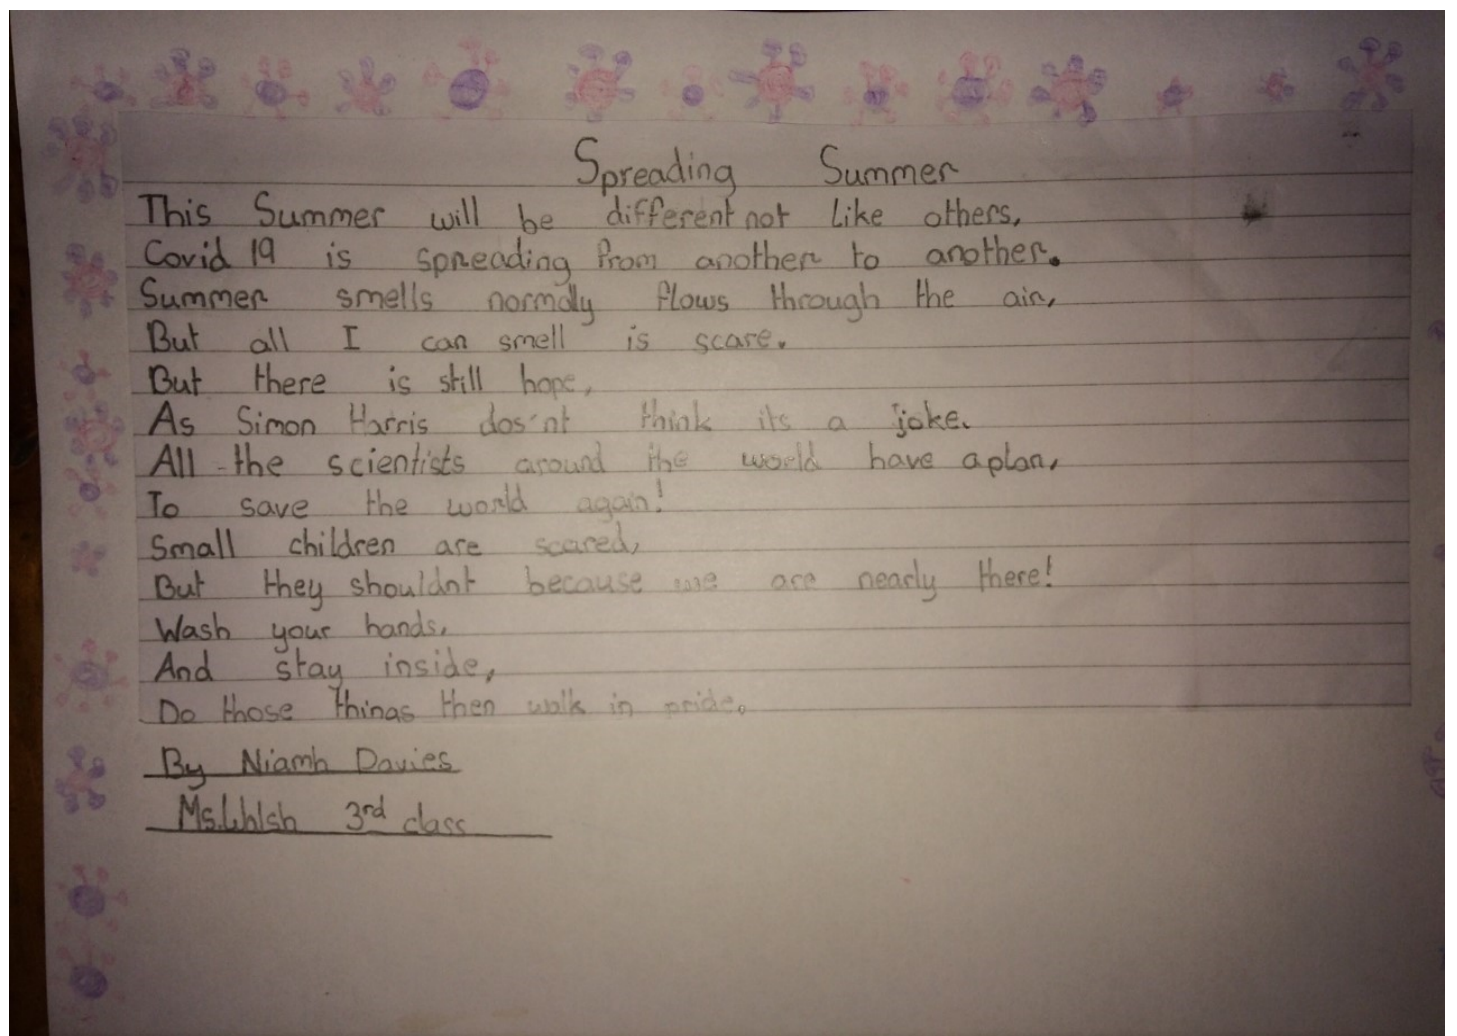 Spreading Summer
This Summer will be different not like others,
Covid 19 is spreading from another to another.
Summer smells normaly flows through the air,
But all I can smell is scare.
But there is still hope,
As Simon Harris dos'nt think its a joke.
All the scientists around the world have a plan,
To save the world again!
Small children are scared,
But they shouldnt because we are nearly there!
Wash your hands,
And stay inside,
Do those things then walk in pride.
By Niamh Davies
Ms.Whlsh 3rd class